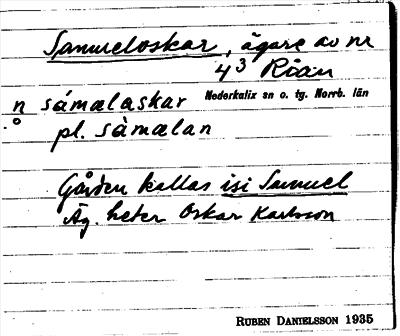 Samueloskar, ägare av nr
4³ Rian
n sámælaskar Nederkalix sn o. tg. Norrb. län
o pl. sàmælan
Gården kallas isi Samuel
Äg. heter Oskar Karlsson
RUBEN DANIELSSON 1935